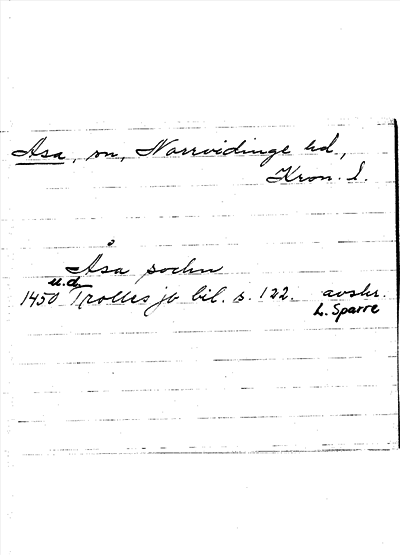 Asa, sn, Norrvidinge hd.,
Kron. l.
Åsa sochn
u.d.
1450 Trolles jb bil. s. 122. avskr.
L. Sparre